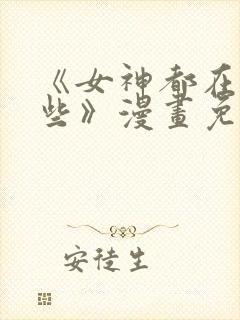 《女神都在
些》漫畫免
安徒生